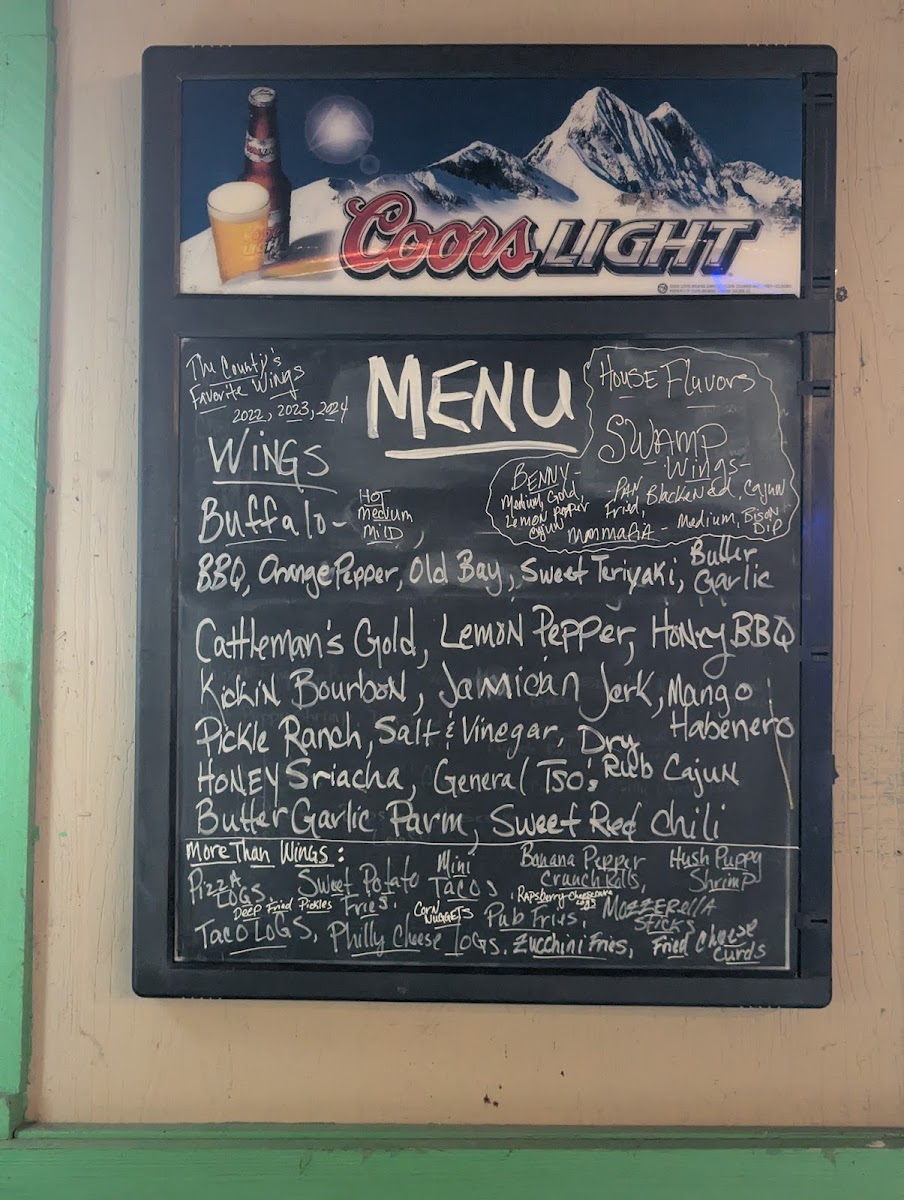 Coors LIGHT
The County's
Favorite Wings
2022, 2023, 2024
MENU
House Flavors
SWAMP
Wings-
PAN
Fried, Blackened, Cajun
BENNY-
Medium, Gold,
Lemon Pepper
Cajun
MMMAFIA - Medium, Bison
Dip
WINGS
Buffalo-
HOT
Medium
MILD,
BBQ, Orange Pepper, Old Bay, Sweet Teriyaki, Butter
Garlic
Cattleman's Gold, Lemon Pepper, Honey BBQ
Kickin Bourbon, Jamician Jerk, Mango
Habenero
Pickle Ranch, Salt & Vinegar, Dry
Rub Cajun
Honey Sriacha, General Tso's
Butter Garlic Parm, Sweet Red Chili
More Than Wings:
Pizza
Logs
Sweet Potato
Fries,
Mini
Tacos
Banana Pepper
Crunch Rolls,
Hush Puppy
Shrimp
Deep Fried Pickles
Corn
Nuggets
Pub Fries,
Rapsberry Cheesecake
Logs
Mozzerella
Sticks
Taco Logs, Philly Cheese Logs, Zucchini Fries, Fried Cheese
Curds